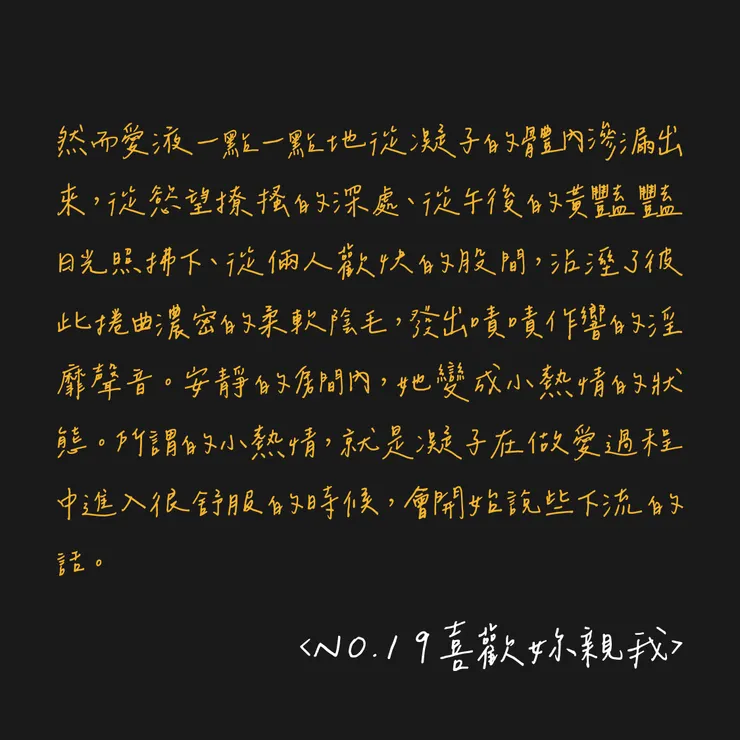 然而愛液一點一點地從凝子的體內滲漏出
來，從慾望撩搔的深處、從午後的黃豔豔
日光照拂下、從倆人歡快的股間，沾溼了彼
此捲曲濃密的柔軟陰毛，發出嘖嘖作響的淫
靡聲音。安靜的房間內，她變成小熱情的狀
態。所謂的小熱情，就是凝子在做愛過程
中進入很舒服的時候，會開始說些下流的
話。
<NO.19喜歡妳親我>